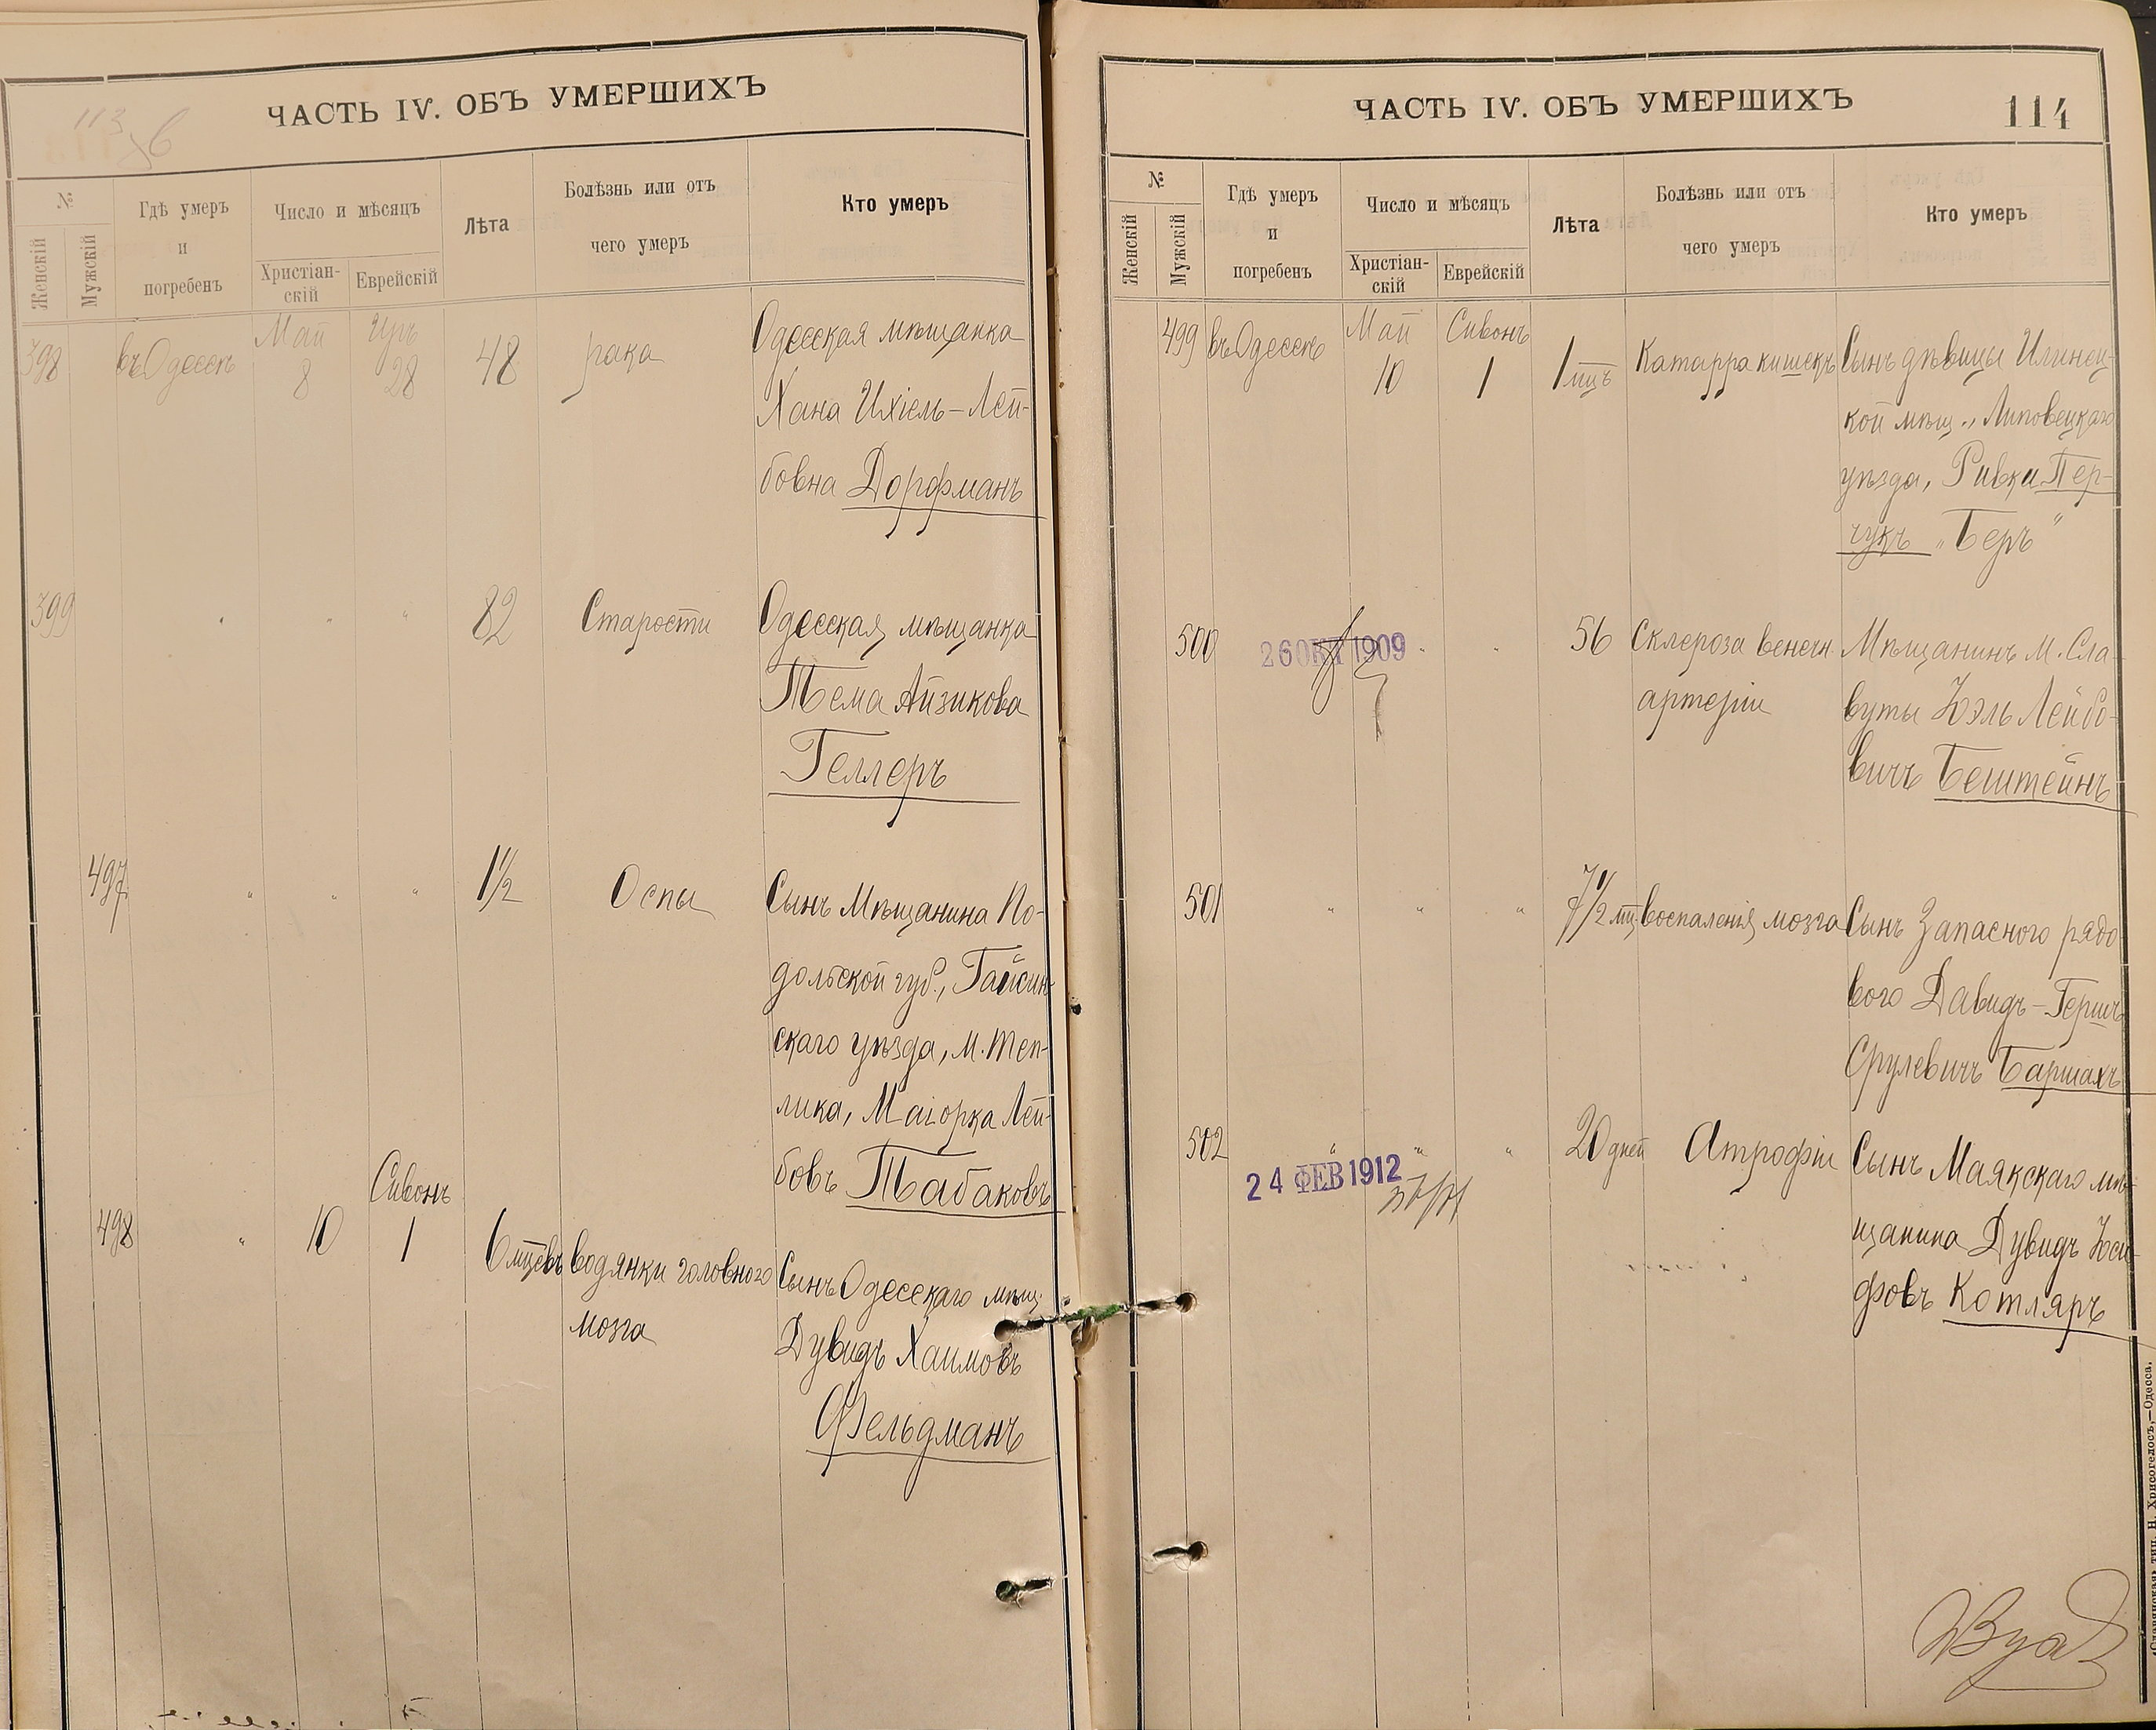 113
ЧАСТЬ IV. ОБЪ УМЕРШИХЪ
№
Женскій
Мужскій
Гдѣ умеръ
и
погребенъ
Число и мѣсяцъ
Христіан-
скій
Еврейскій
Лѣта
Болѣзнь или отъ
чего умеръ
Кто умеръ
398
въ Одессѣ
Май
8
Іуръ
28
48
рака
Одесская мѣщанка
Хана Ихіель-Лей-
бовна Дорфманъ
399
"
"
"
82
Старости
Одесская мѣщанка
Тема Айзикова
Геллеръ
497
"
"
"
1½
Оспы
Сынъ Мѣщанина По-
дольской губ., Гайсин-
скаго уѣзда, М. Теп-
лика, Маіорка Лей-
бовъ Табаковъ
498
"
10
Сивонъ
1
6 мцевъ
водянки головного
мозга
Сынъ Одесскаго мѣщ.
Дувидъ Хаимовъ
Фельдманъ
ЧАСТЬ IV. ОБЪ УМЕРШИХЪ
114
№
Женскій
Мужскій
Гдѣ умеръ
и
погребенъ
Число и мѣсяцъ
Христіан-
скій
Еврейскій
Лѣта
Болѣзнь или отъ
чего умеръ
Кто умеръ
499
въ Одессѣ
Май
10
Сивонъ
1
1 мцъ
Катарра кишекъ
Сынъ дѣвицы Илинец-
кой мѣщ., Липовецкаго
уѣзда, Ривки Пер-
чукъ „Беръ"
500
26 ОКТ 1909
"
"
56
Склероза венечн.
артеріи
Мѣщанинъ М. Сла-
вуты Іоэль Лейбо-
вичъ Бештейнъ
501
"
"
"
7½ мц.
воспаленія мозга
Сынъ Запасного рядо-
вого Давидъ-Гершъ
Срулевичъ Баршахъ
502
"
"
"
24 ФЕВ 1912
20 дней
Атрофіи
Сынъ Маякскаго мѣ-
щанина Дувидъ Іоси-
фовъ Котляръ
«Славянская» тип. Н. Хрисогелосъ,—Одесса.